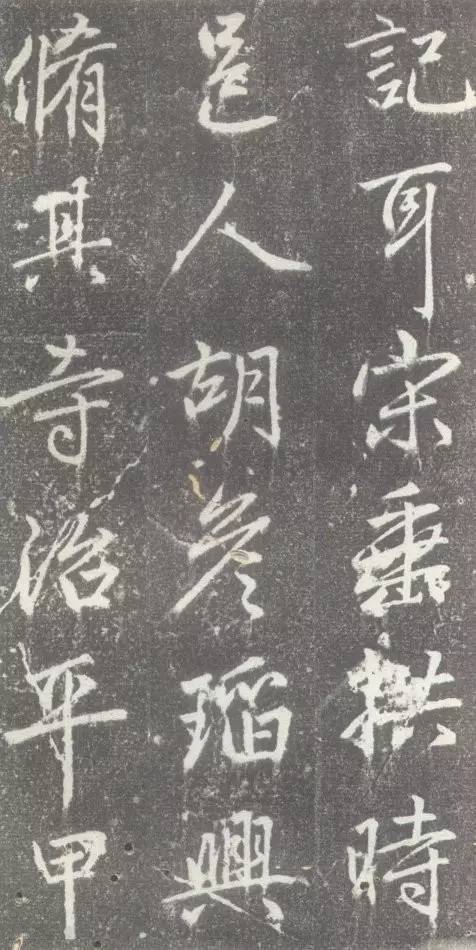 記耳宋垂拱時
邑人胡參瑫興
脩其寺治平甲